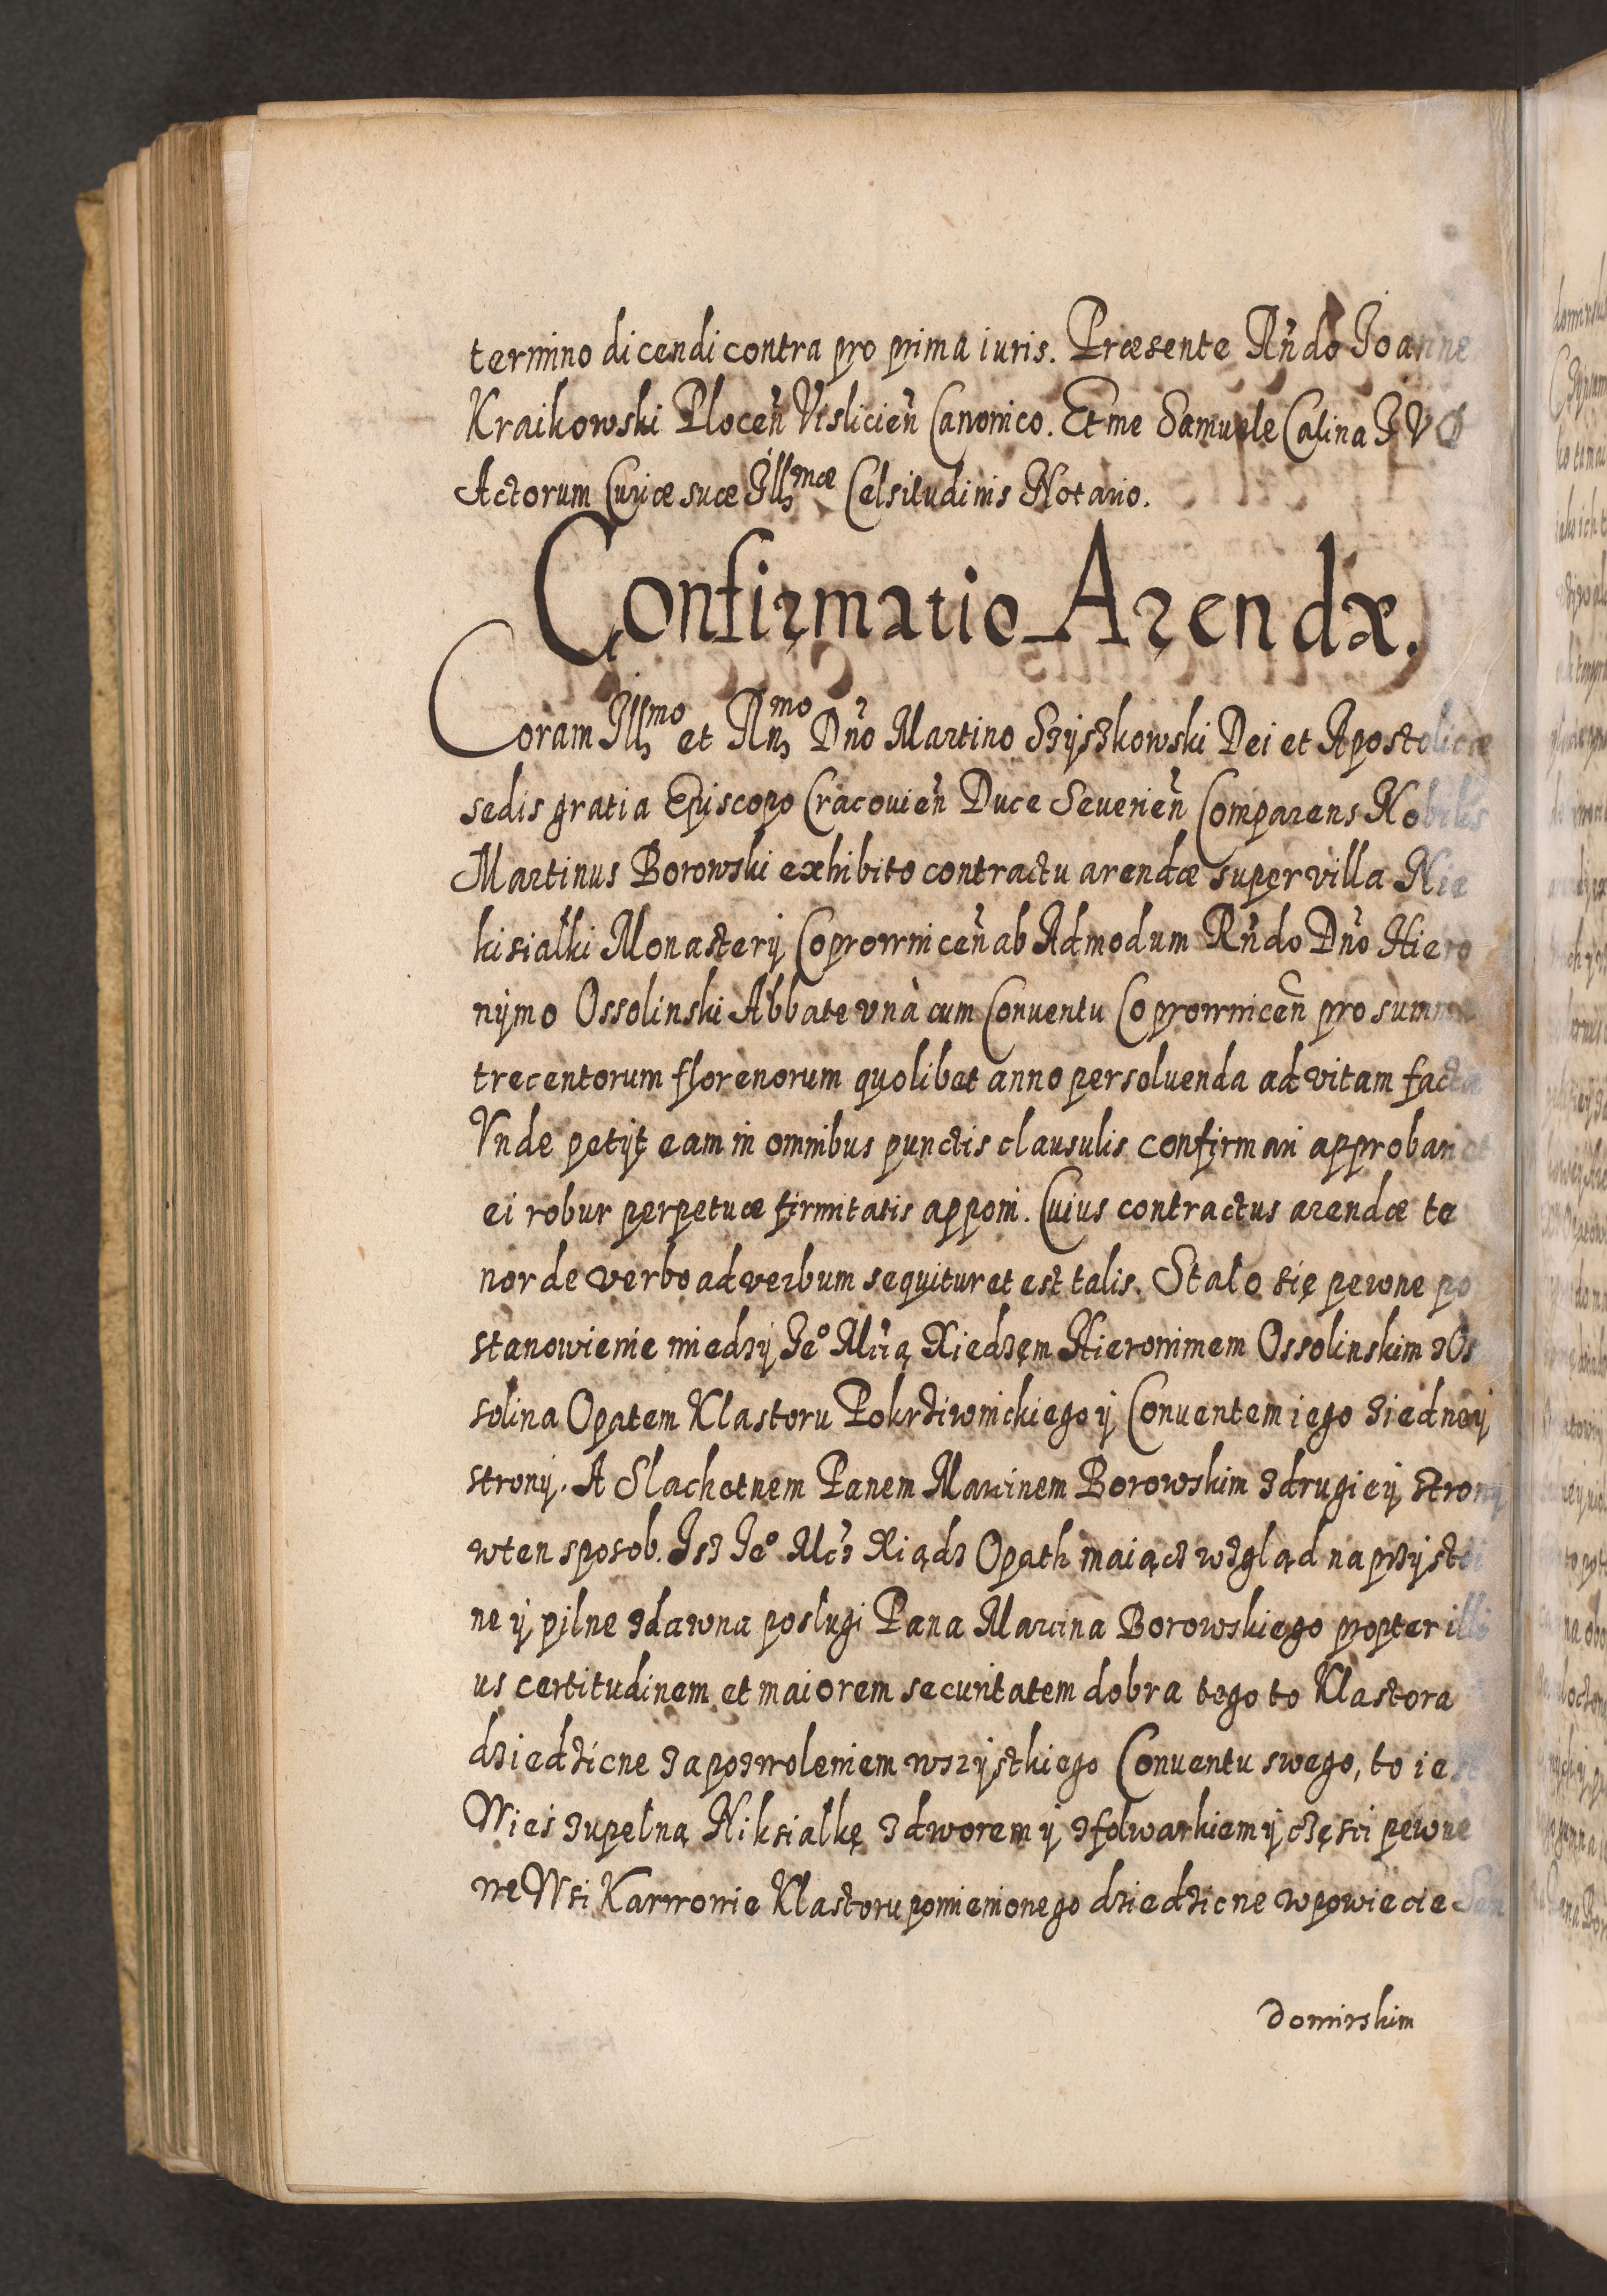 termino dicendi contra pro prima iuris. Præsente Rn̄do Joanne
Kraikowski Plocen̄ Vislicien̄ Canonico. Et me Samuele Calina J V D
Actorum Curiæ suæ Illmæ Celsitudinis Notario.
Confirmatio Arendæ.
Coram Illmo et Rnmo Dn̄o Martino Szyszkowski Dei et Apostolicæ
sedis gratia Episcopo Cracouien̄ Duce Seuerien̄ Comparens Nobilis
Martinus Borowski exhibito contractu arendæ super villa Nie
kisialki Monasterÿ Coprownicen̄ ab Admodum Rn̄do Dn̄o Hiero
nÿmo Ossolinski Abbate vnà cum Conuentu Coprownicen̄ pro summa
trecentorum florenorum quolibet anno persoluenda ad vitam facta
Vnde petÿt eam in omnibus punctis clausulis confirmari approbari et
ei robur perpetuæ firmitatis apponi. Cuius contractus arendæ te
nor de verbo ad verbum sequitur et est talis. Stalo się pewne po
stanowienie miedzÿ Jeº Mcią Xiedzęm Hieronimem Ossolinskim z Os
solina Opatem Klastoru Pokrziwnickiego ÿ Conuentem iego z iedneÿ
stronÿ. A Slachetnem Panem Marcinem Borowskim z drugieÿ stronÿ
w ten sposob. Isz Jeº Mcz Xiądz Opath maiącz wzgląd na przÿstoi
ne ÿ pilne zdawna poslugi Pana Marcina Borowskiego propter illi
us certitudinem et maiorem securitatem dobra tego to Klastora
dziedzicne za pozwoleniem wszÿstkiego Conuentu swego, to iest
Wieś zupelną Niksialkę z dworem ÿ z folwarkiem ÿ części pewne
we Wsi Karwowie Klastoru pomienionego dziedzicne w powiecie Sen
domirskim